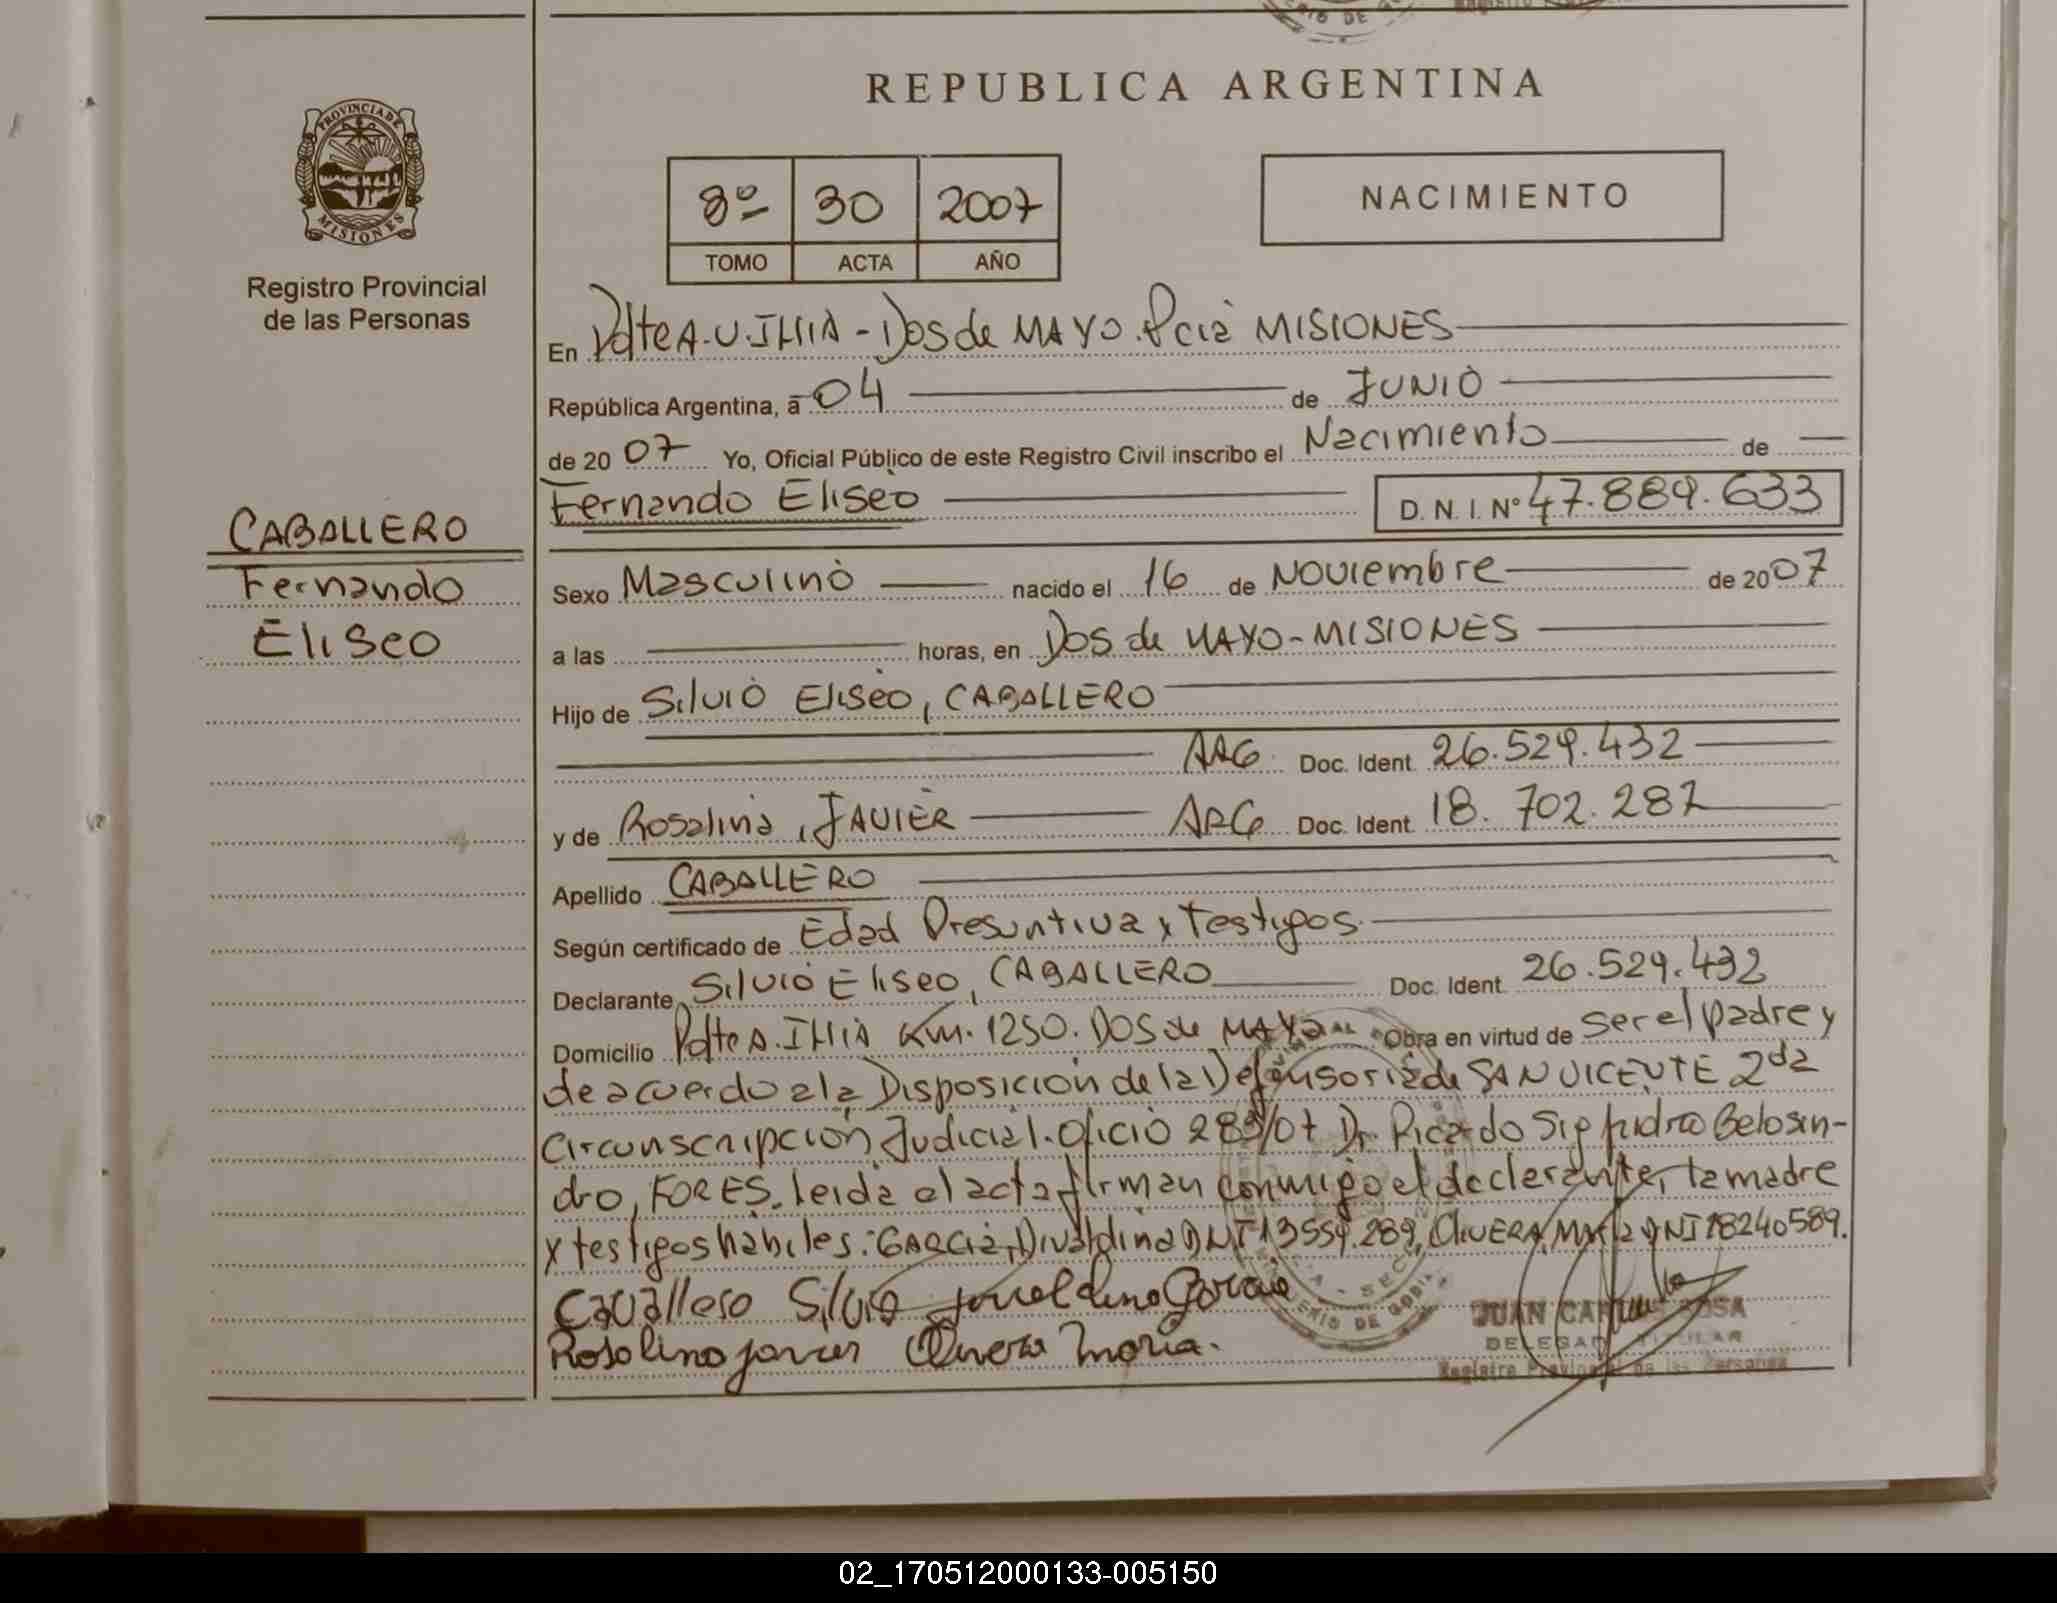 REPUBLICA ARGENTINA
PROVINCIA DE
MISIONES
Registro Provincial
de las Personas
8º 30 2007
TOMO ACTA AÑO
NACIMIENTO
En Pdte A.U.Illia - Dos de MAYO. Pcia MISIONES
República Argentina, a 04 de JUNIO
de 2007 Yo, Oficial Público de este Registro Civil inscribo el Nacimiento de
Fernando Eliseo D. N. I. Nº 47.889.633
CABALLERO
Fernando
Eliseo
Sexo Masculino nacido el 16 de Noviembre de 2007
a las horas, en Dos de MAYO - MISIONES
Hijo de Silvio Eliseo, CABALLERO
ARG. Doc. Ident. 26.529.432
y de Rosalina, JAVIER ARG Doc. Ident. 18.702.287
Apellido CABALLERO
Según certificado de Edad Presuntiva y Testigos.
Declarante Silvio Eliseo, CABALLERO Doc. Ident. 26.529.432
Domicilio Pdte A. Illia Km. 1250. DOS de MAYO Obra en virtud de ser el padre y
de acuerdo a la Disposición de la Defensoria de SAN VICENTE 2da
Circunscripción Judicial. Oficio 289/07 Dr. Ricardo Sigfridro Belosin-
dro, FORES. Leida el acta firman conmigo el declarante, la madre
y testigos habiles: GARCIA, Divaldina DNI 13559.289, OLIVERA, Maria DNI 18240589.
Caballero Silvio Garcia
Rosalina Javier Olivera Maria.
JUAN CARLOS SOSA
DELEGADO TITULAR
Registro Provincial de las Personas
02_170512000133-005150